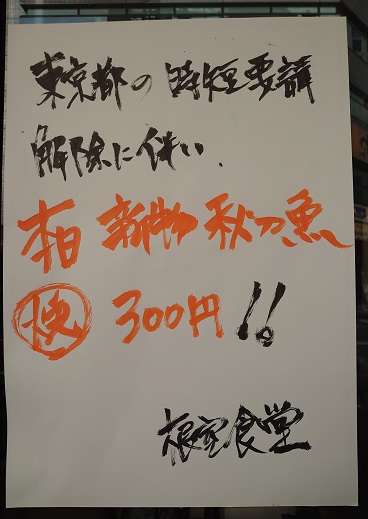 東京都の時短要請
解除に伴い、
本日 新物 秋刀魚
焼 300円!!
根室食堂